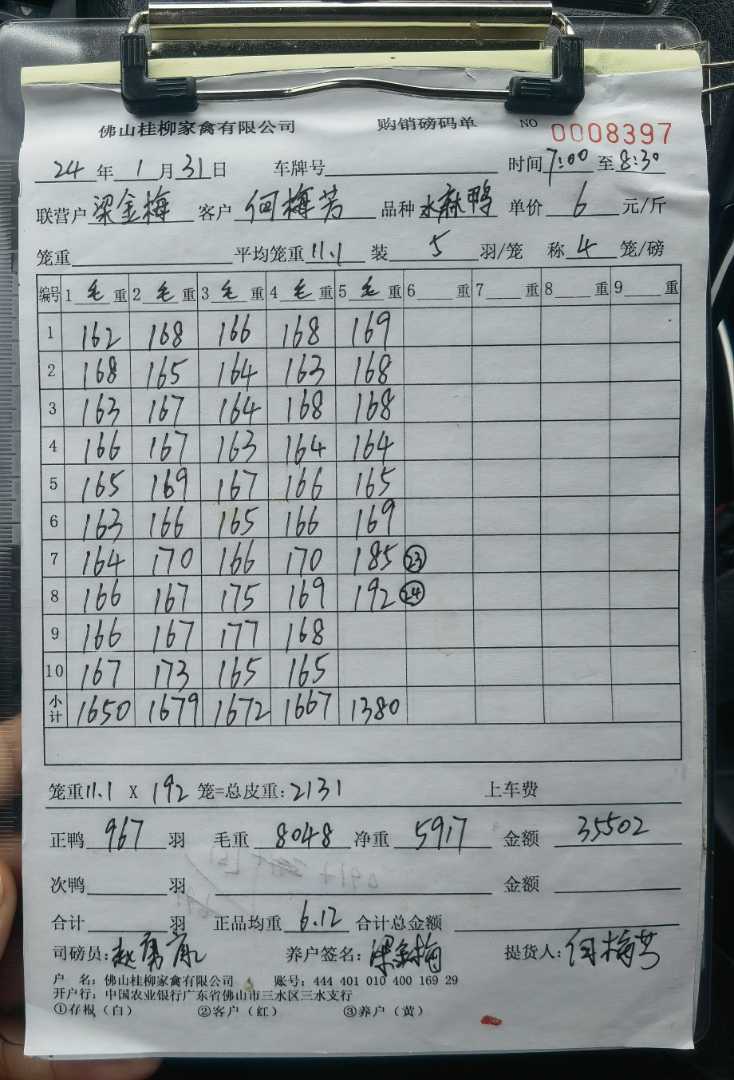 佛山桂柳家禽有限公司 购销磅码单 NO 0008397
24年1月31日 车牌号 时间7:00至8:30
联营户梁金梅 客户何梅芳 品种水麻鸭 单价6元/斤
笼重 平均笼重11.1 装5羽/笼 称4笼/磅
编号 1毛重 2毛重 3毛重 4毛重 5毛重 6重 7重 8重 9重
1 162 168 166 168 169
2 168 165 164 163 168
3 163 167 164 168 168
4 166 167 163 164 164
5 165 169 167 166 165
6 163 166 165 166 169
7 164 170 166 170 185 ㉓
8 166 167 175 169 192 ㉔
9 166 167 177 168
10 167 173 165 165
小计 1650 1679 1672 1667 1380
笼重11.1 X 192笼=总皮重:2131 上车费
正鸭967羽 毛重8048 净重5917 金额35502
次鸭 羽 金额
合计 羽 正品均重6.12 合计总金额
司磅员: 养户签名:梁金梅 提货人:何梅芳
户 名:佛山桂柳家禽有限公司 账号:444 401 010 400 169 29
开户行:中国农业银行广东省佛山市三水区三水支行
①存根(白) ②客户(红) ③养户(黄)